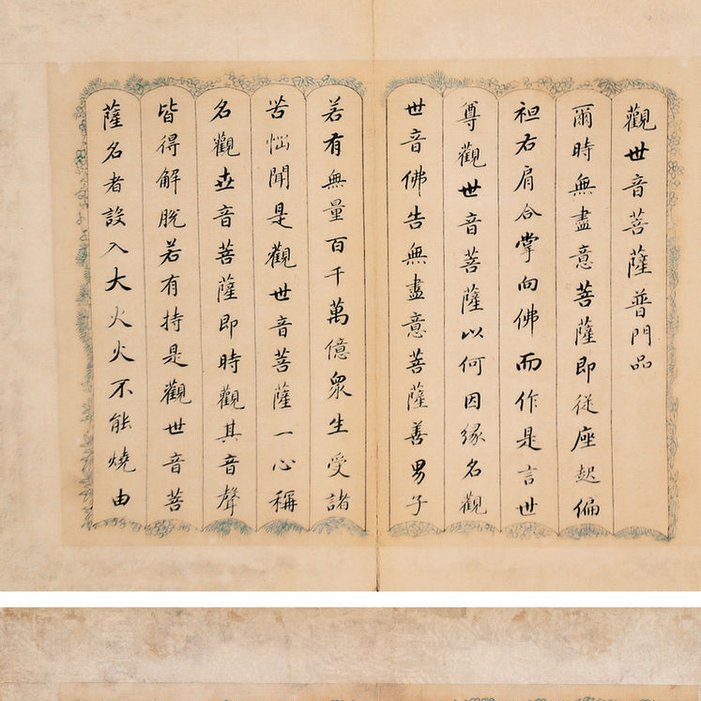 觀世音菩薩普門品
爾時無盡意菩薩即從座起偏
袒右肩合掌向佛而作是言世
尊觀世音菩薩以何因緣名觀
世音佛告無盡意菩薩善男子
若有無量百千萬億衆生受諸
苦惱聞是觀世音菩薩一心稱
名觀世音菩薩即時觀其音聲
皆得解脫若有持是觀世音菩
薩名者設入大火火不能燒由